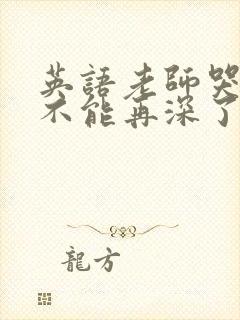 英語老師哭
不能再深了
龍方